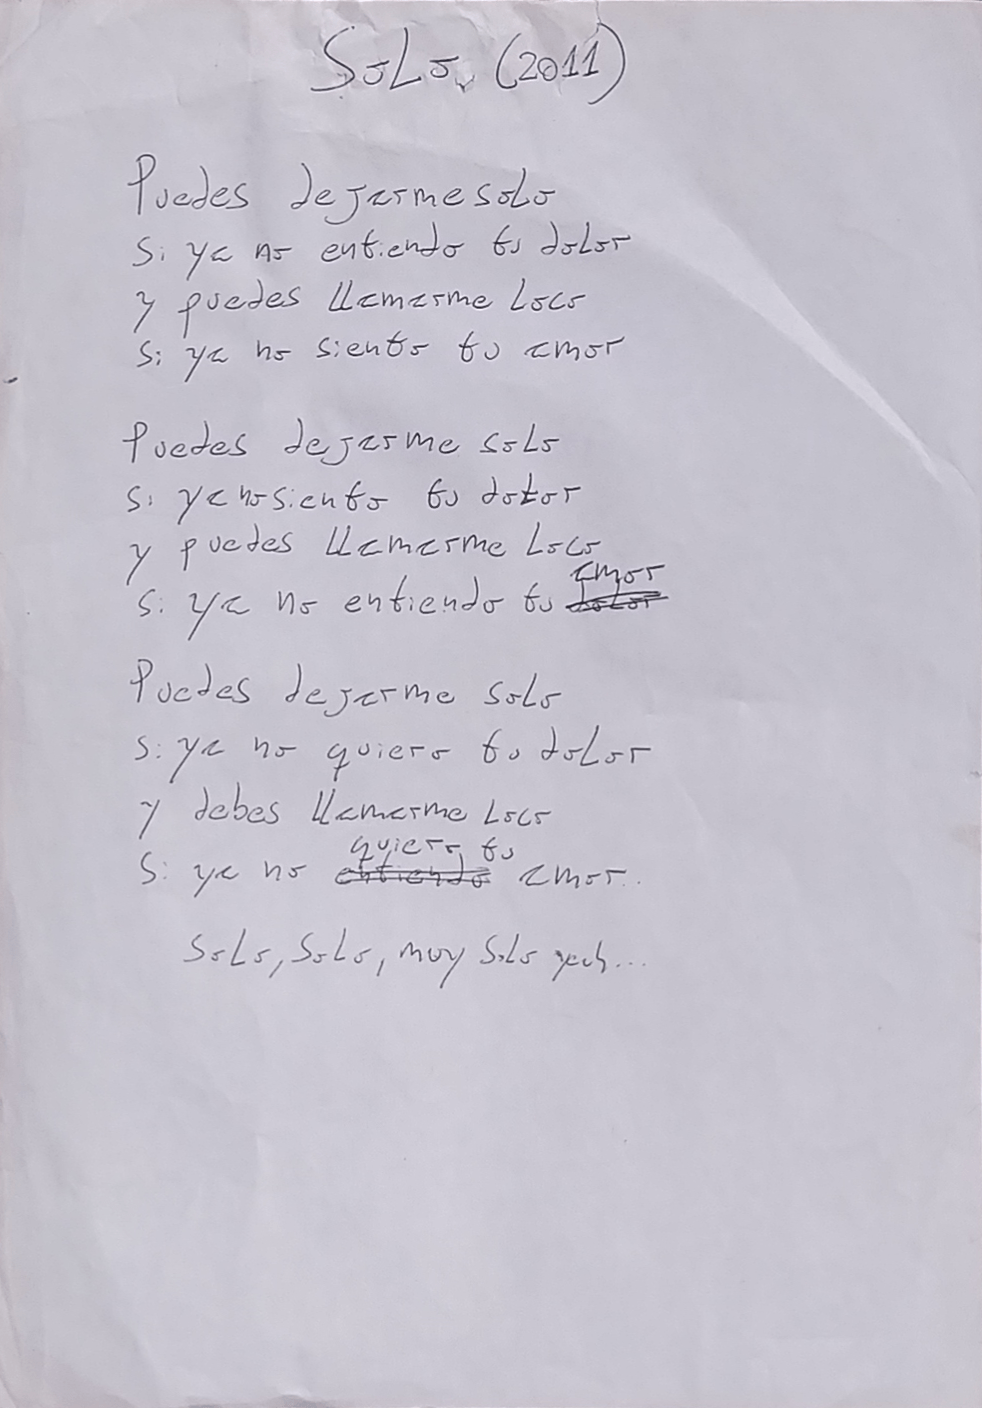 SoLo. (2011)
Puedes dejarme solo
Si ya no entiendo tu doLor
y puedes llamarme Loco
Si ya no siento tu amor
Puedes dejarme soLo
Si ya no siento tu dolor
y puedes llamarme Loco
Si ya no entiendo tu dolor amor
Puedes dejarme SoLo
Si ya no quiero tu doLor
y debes llamarme Loco
Si ya no entiendo quiero tu amor..
SoLo, SoLo, muy SoLo yeah...